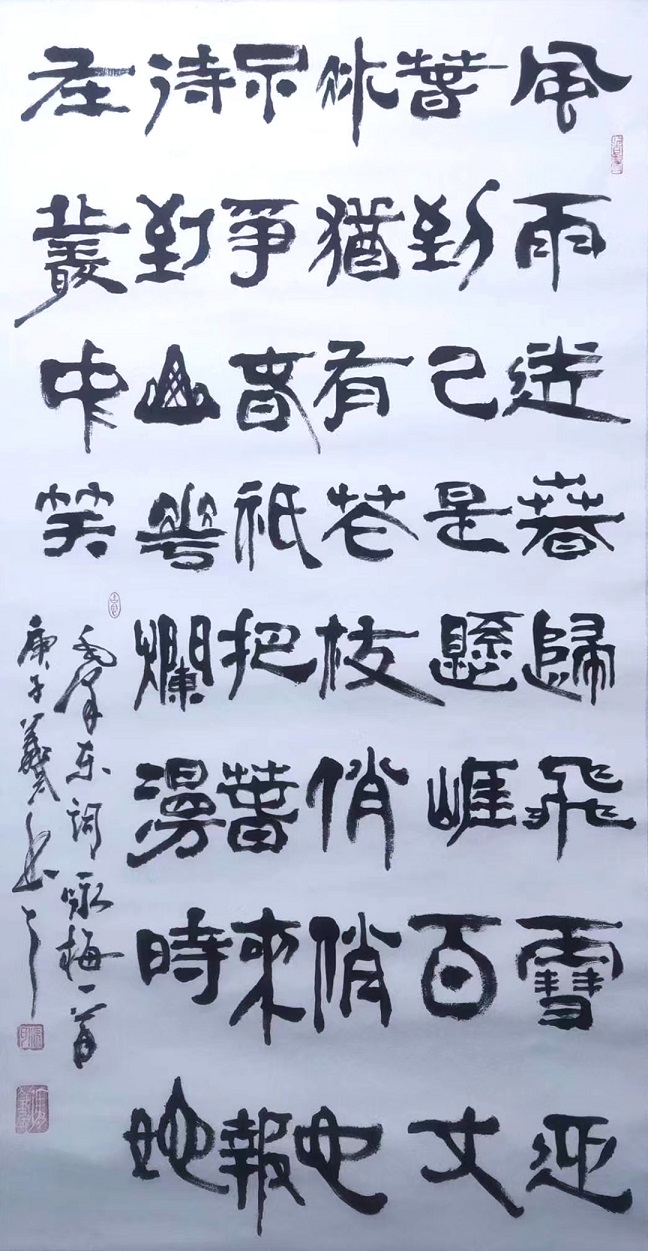 風雨送春歸飛雪迎
春到已是懸崖百丈
冰猶有花枝俏俏也
不爭春祇把春來報
待到山花爛漫時她
在叢中笑
毛澤东詞咏梅一首
庚子